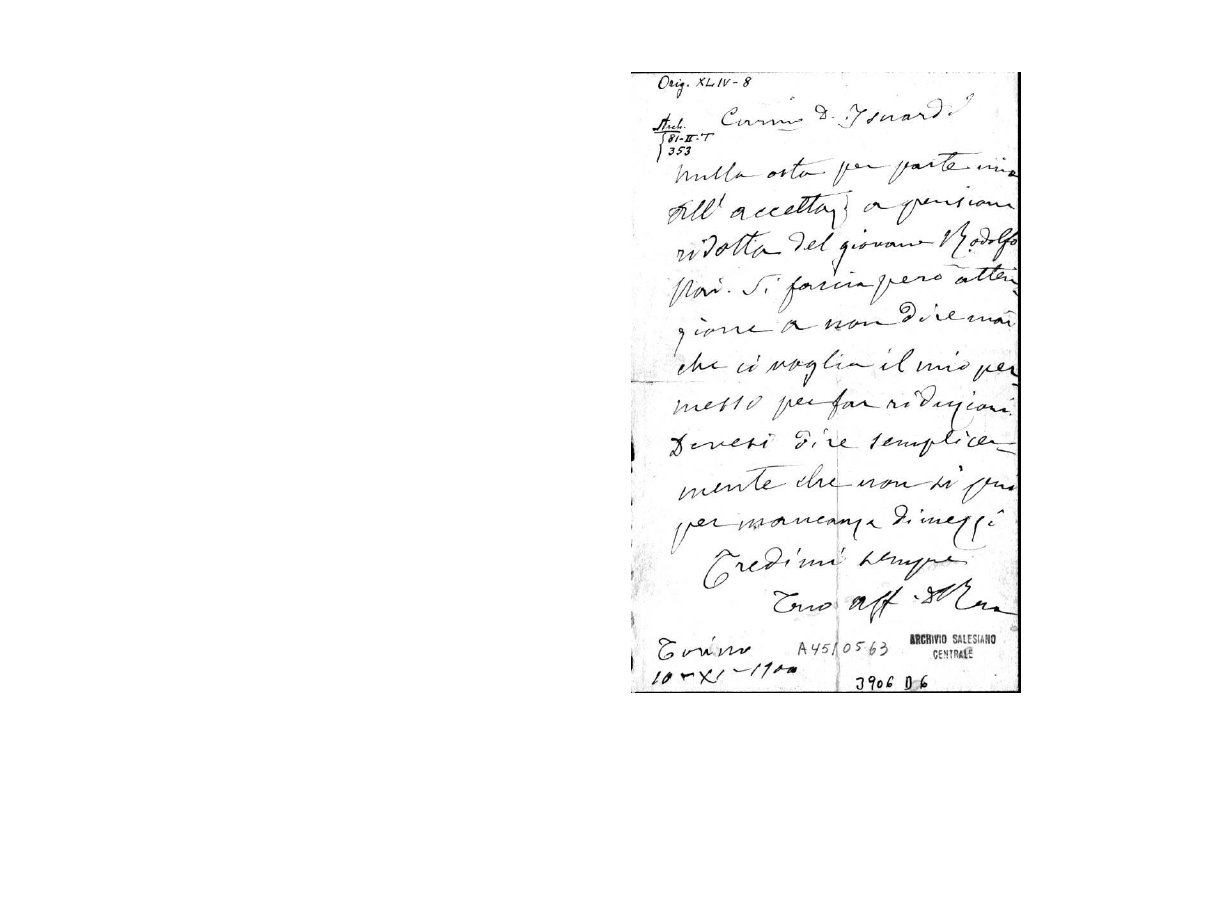 Orig. XLIV-8
Car.mo D. Isnardi
Arch.
81-II-T
353
Nulla osta per parte mia
all' accettaz. a pensione
ridotta del giovane Rodolfo
Si faccia però atten-
zione a non dire mai
che ci voglia il mio per-
messo per far riduzioni.
Devesi dire semplice-
mente che non si può
per mancanza di mezzi
Credimi sempre
Tuo aff. D Rua
Torino
10-XI-1900
A4510563
ARCHIVIO SALESIANO
CENTRALE
3906 D 6